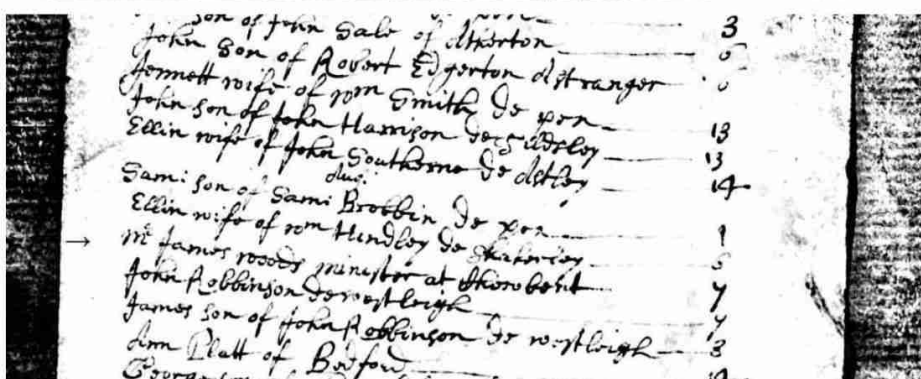 son of John Sale of Atherton 3
John Son of Robert Edgerton A stranger 6
Jennett wife of wm Smith de pen 6
John son of John Harrison de Tildsley 13
Ellin wife of John Southerne de Astley 13
14
Aug:
Sam: son of Sam: Brobbin de pen 1
Ellin wife of wm Hindley de Shakerley 5
→ Mr James woods minister at Chowbent 7
John Robbinson de westleigh 7
James son of John Robbinson de westleigh 8
Ann Platt of Bedford
George